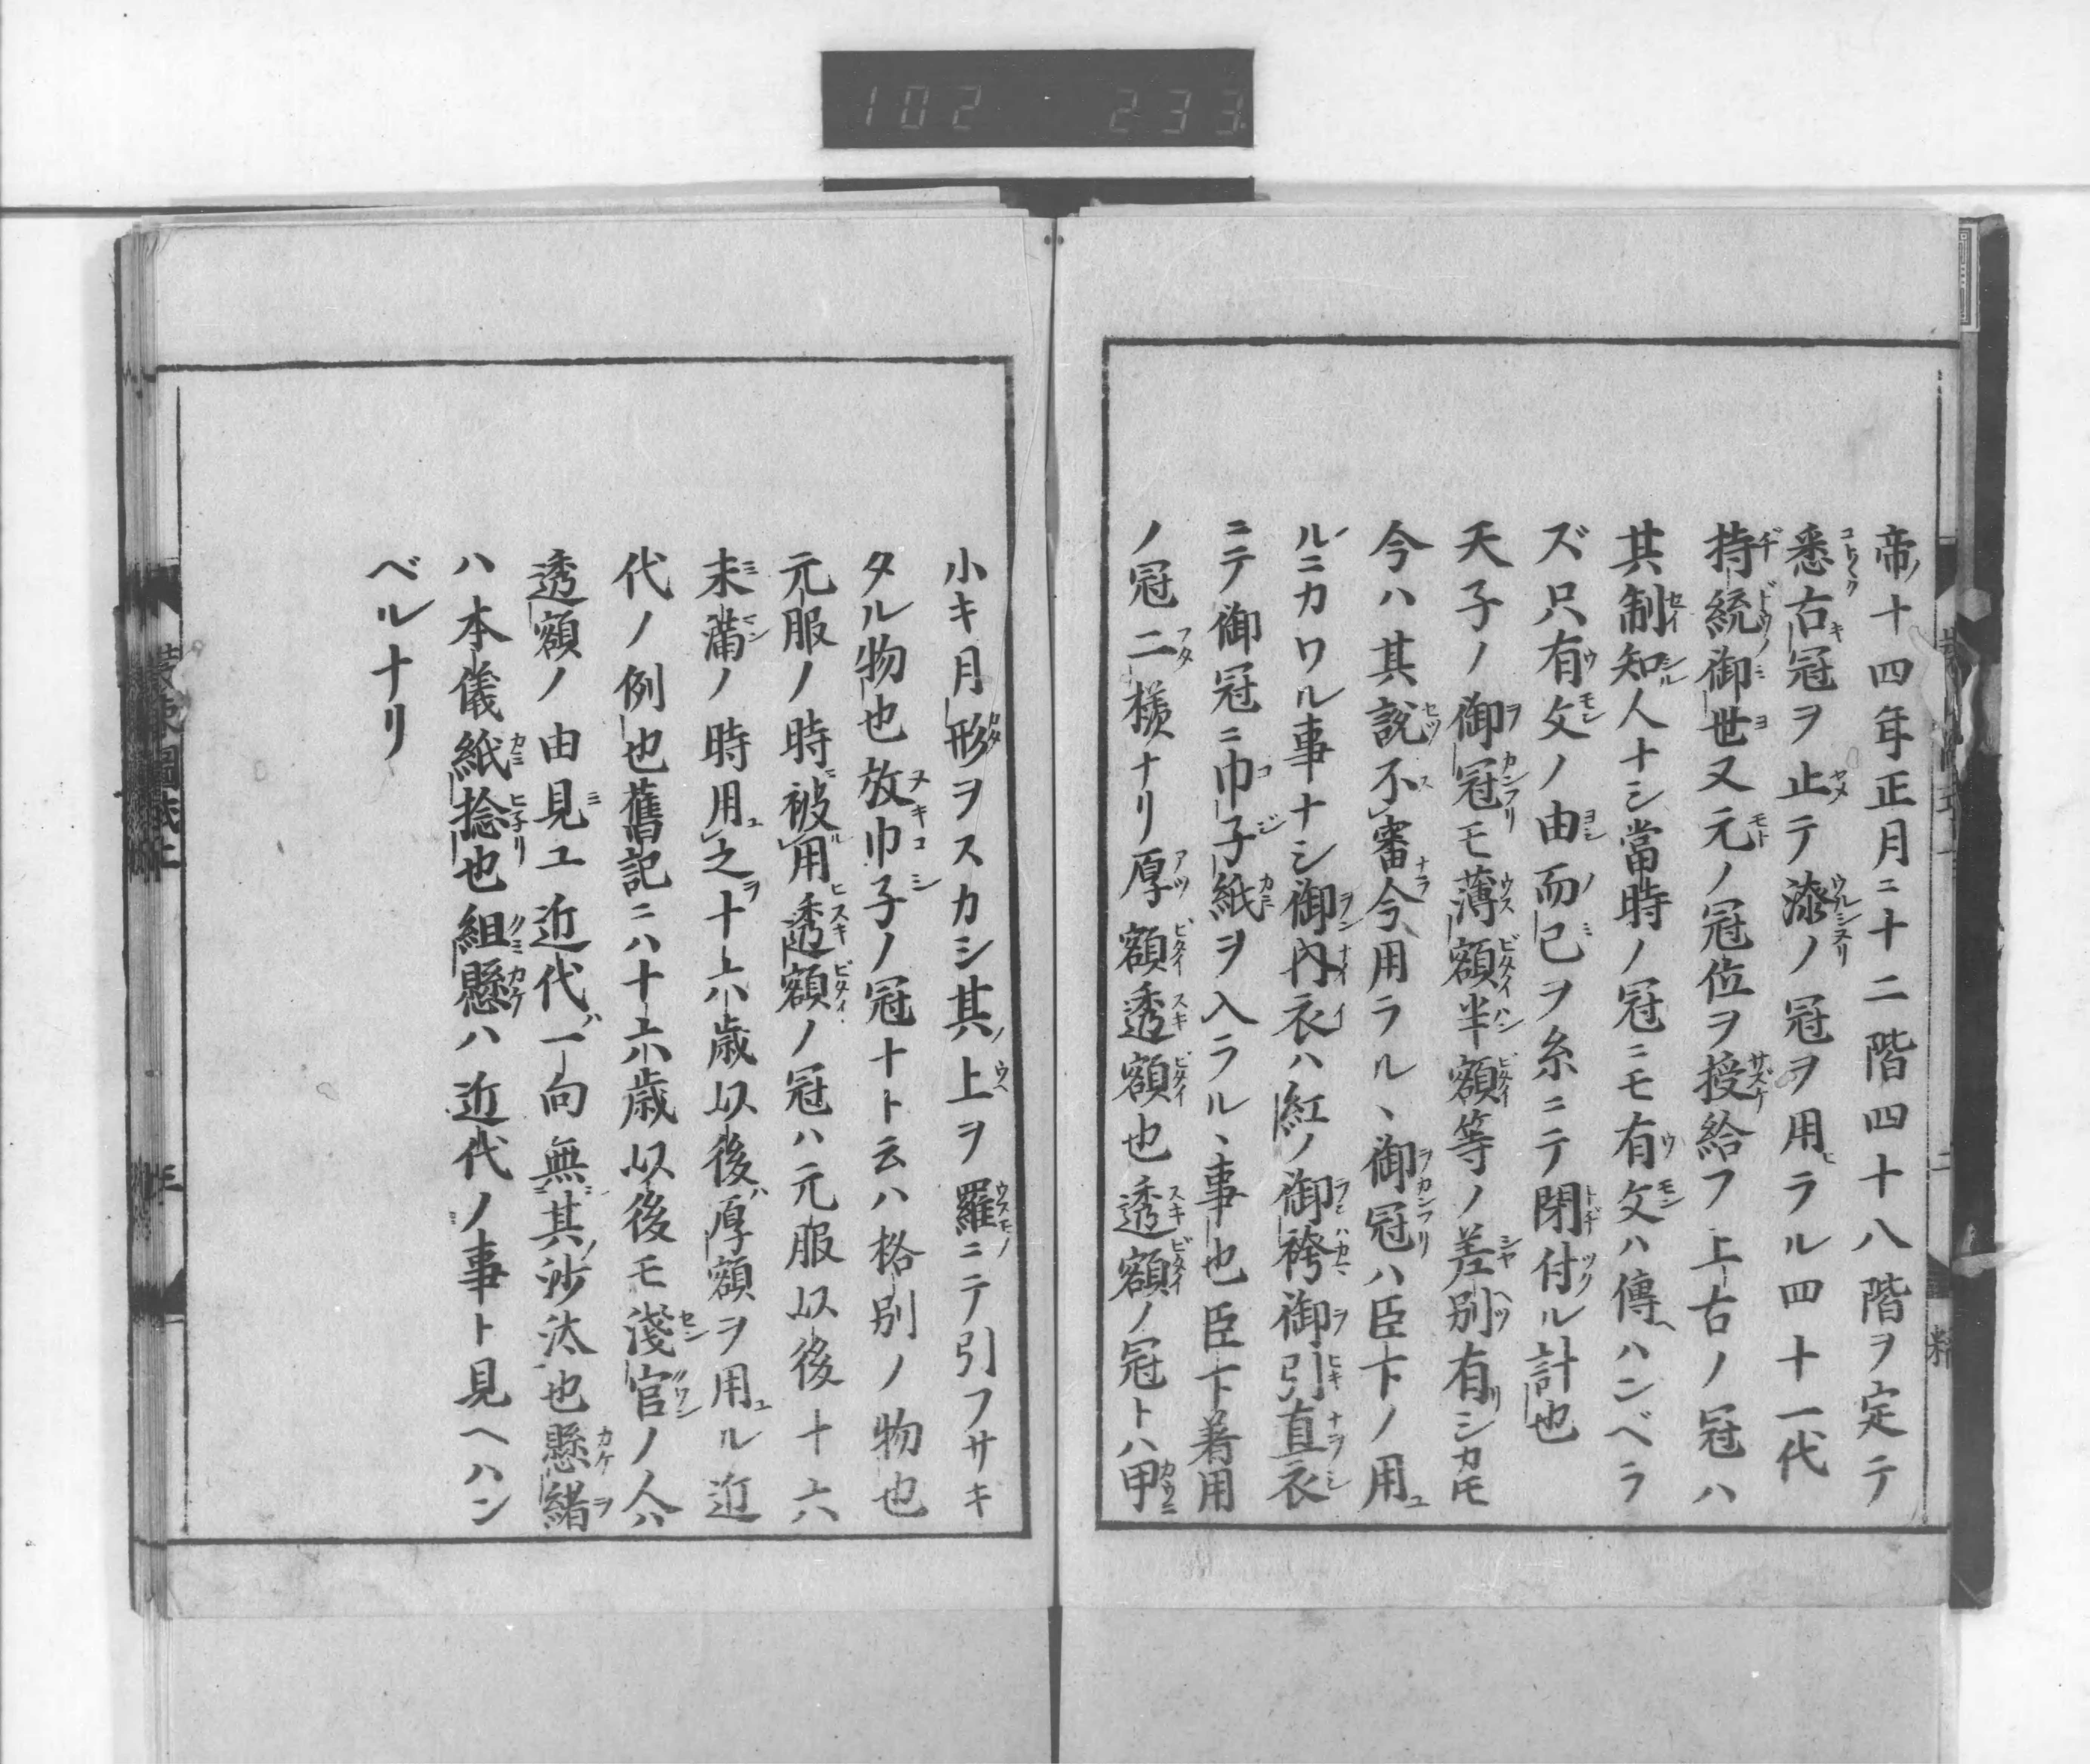 102 233
帝ノ十四年正月ニ十二階四十八階ヲ定テ
悉古冠ヲ止テ漆ノ冠ヲ用ラル四十一代
持統御世又元ノ冠位ヲ授給フ上古ノ冠ハ
其制知人ナシ當時ノ冠ニモ有文ハ傳ハンベラ
ズ只有文ノ由而已ヲ糸ニテ閉付ル計也
天子ノ御冠モ薄額半額等ノ差別有シカ𪜈
今ハ其説不審今用ラル、御冠ハ臣下ノ用
ルニカワル事ナシ御内衣ハ紅ノ御袴御引直衣
ニテ御冠ニ巾子紙ヲ入ラル、事也臣下着用
ノ冠二様ナリ厚額透額也透額ノ冠トハ甲
小キ月形ヲスカシ其上ヲ羅ニテ引フサキ
タル物也放巾子ノ冠ナト云ハ格別ノ物也
元服ノ時被用透額ノ冠ハ元服以後十六
未滿ノ時用之十六歳以後厚額ヲ用ル近
代ノ例也舊記ニハ十六歳以後モ淺官ノ人ハ
透額ノ由見ユ近代一向無其沙汰也懸緒
ハ本儀紙捻也組懸ハ近代ノ事ト見ヘハン
ベルナリ